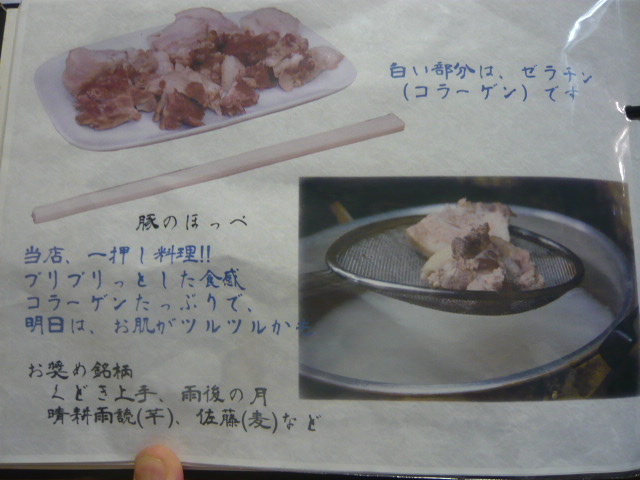 白い部分は、ゼラチン
(コラーゲン)です
豚のほっぺ
当店、一押し料理!!
プリプリっとした食感
コラーゲンたっぷりで、
明日は、お肌がツルツルかも
お奨め銘柄
くどき上手、雨後の月
晴耕雨読(芋)、佐藤(麦)など